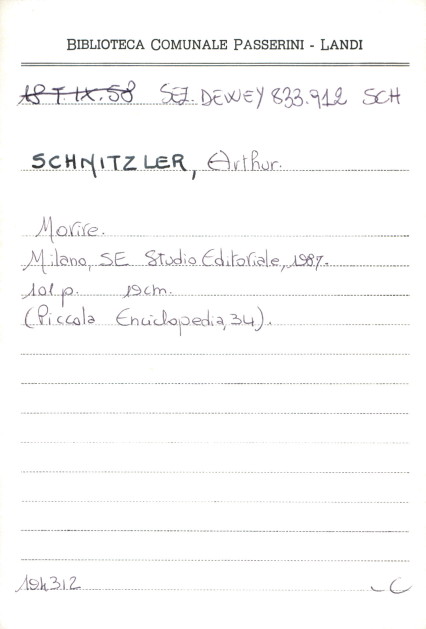 BIBLIOTECA COMUNALE PASSERINI - LANDI
18 T. IX. 58 SEZ. DEWEY 833.912 SCH
SCHNITZLER, Arthur.
Morire.
Milano, SE Studio Editoriale, 1987.
101 p. 19cm.
(Piccola Enciclopedia, 34).
194312